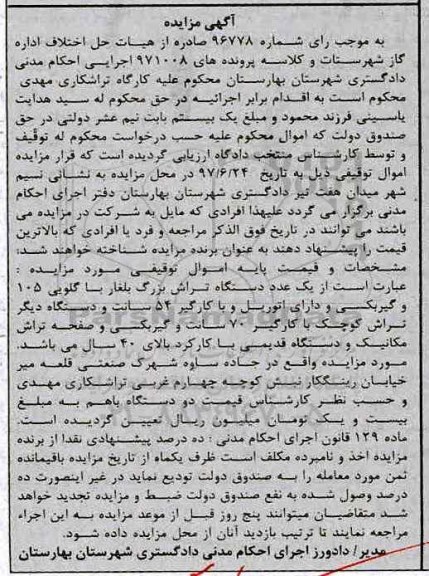 آگهی مزایده
به موجب رای شماره ۹۶۷۷۸ صادره از هیات حل اختلاف اداره
گاز شهرستات و کلاسه پرونده های ۹۷۱۰۰۸ اجرایی احکام مدنی
دادگستری شهرستان بهارستان محکوم علیه کارگاه تراشکاری مهدی
محکوم است به اقدام برابر اجرائیه در حق محکوم له سید هدایت
یاسینی فرزند محمود و مبلغ یک بیستم بابت نیم عشر دولتی در حق
صندوق دولت که اموال محکوم علیه حسب درخواست محکوم له توقیف
و توسط کارشناس منتخب دادگاه ارزیابی گردیده است که قرار مزایده
اموال توقیفی ذیل به تاریخ ۹۷/۶/۲۴ در محل مزایده به نشانی نسیم
شهر میدان هفت تیر دادگستری شهرستان بهارستان دفتر اجرای احکام
مدنی برگزار می گردد علیهذا افرادی که مایل به شرکت در مزایده می
باشند می توانند در تاریخ فوق الذکر مراجعه و فرد یا افرادی که بالاترین
قیمت را پیشنهاد دهند به عنوان برنده مزایده شناخته خواهند شد:
مشخصات و قیمت پایه اموال توقیفی مورد مزایده :
عبارت است از یک عدد دستگاه تراش بزرگ بلغار با گلویی ۱۰۵
و گیربکی و دارای اتوریل و با کارگیر ۵۲ سانت و دستگاه دیگر
تراش کوچک با کارگیر ۷۰ سانت و گیربکی و صفحه تراش
مکانیک و دستگاه قدیمی با کارکرد بالای ۴۰ سال می باشد.
مورد مزایده واقع در جاده ساوه شهرک صنعتی قلعه میر
خیابان رینگکار نبش کوچه چهارم غربی تراشکاری مهدی
و حسب نظر کارشناس قیمت دو دستگاه باهم به مبلغ
بیست و یک تومان میلیون ریال تعیین گردیده است.
ماده ۱۲۹ قانون اجرای احکام مدنی : ده درصد پیشنهادی نقدا از برنده
مزایده اخذ و نامبرده مکلف است ظرف یکماه از تاریخ مزایده باقیمانده
ثمن مورد معامله را به صندوق دولت تودیع نماید در غیر اینصورت ده
درصد وصول شده به نفع صندوق دولت ضبط و مزایده تجدید خواهد
شد متقاضیان میتوانند پنج روز قبل از موعد مزایده به این اجراء
مراجعه نمایند تا ترتیب بازدید آنان از محل مزایده داده شود.
مدیر/ دادورز اجرای احکام مدنی دادگستری شهرستان بهارستان